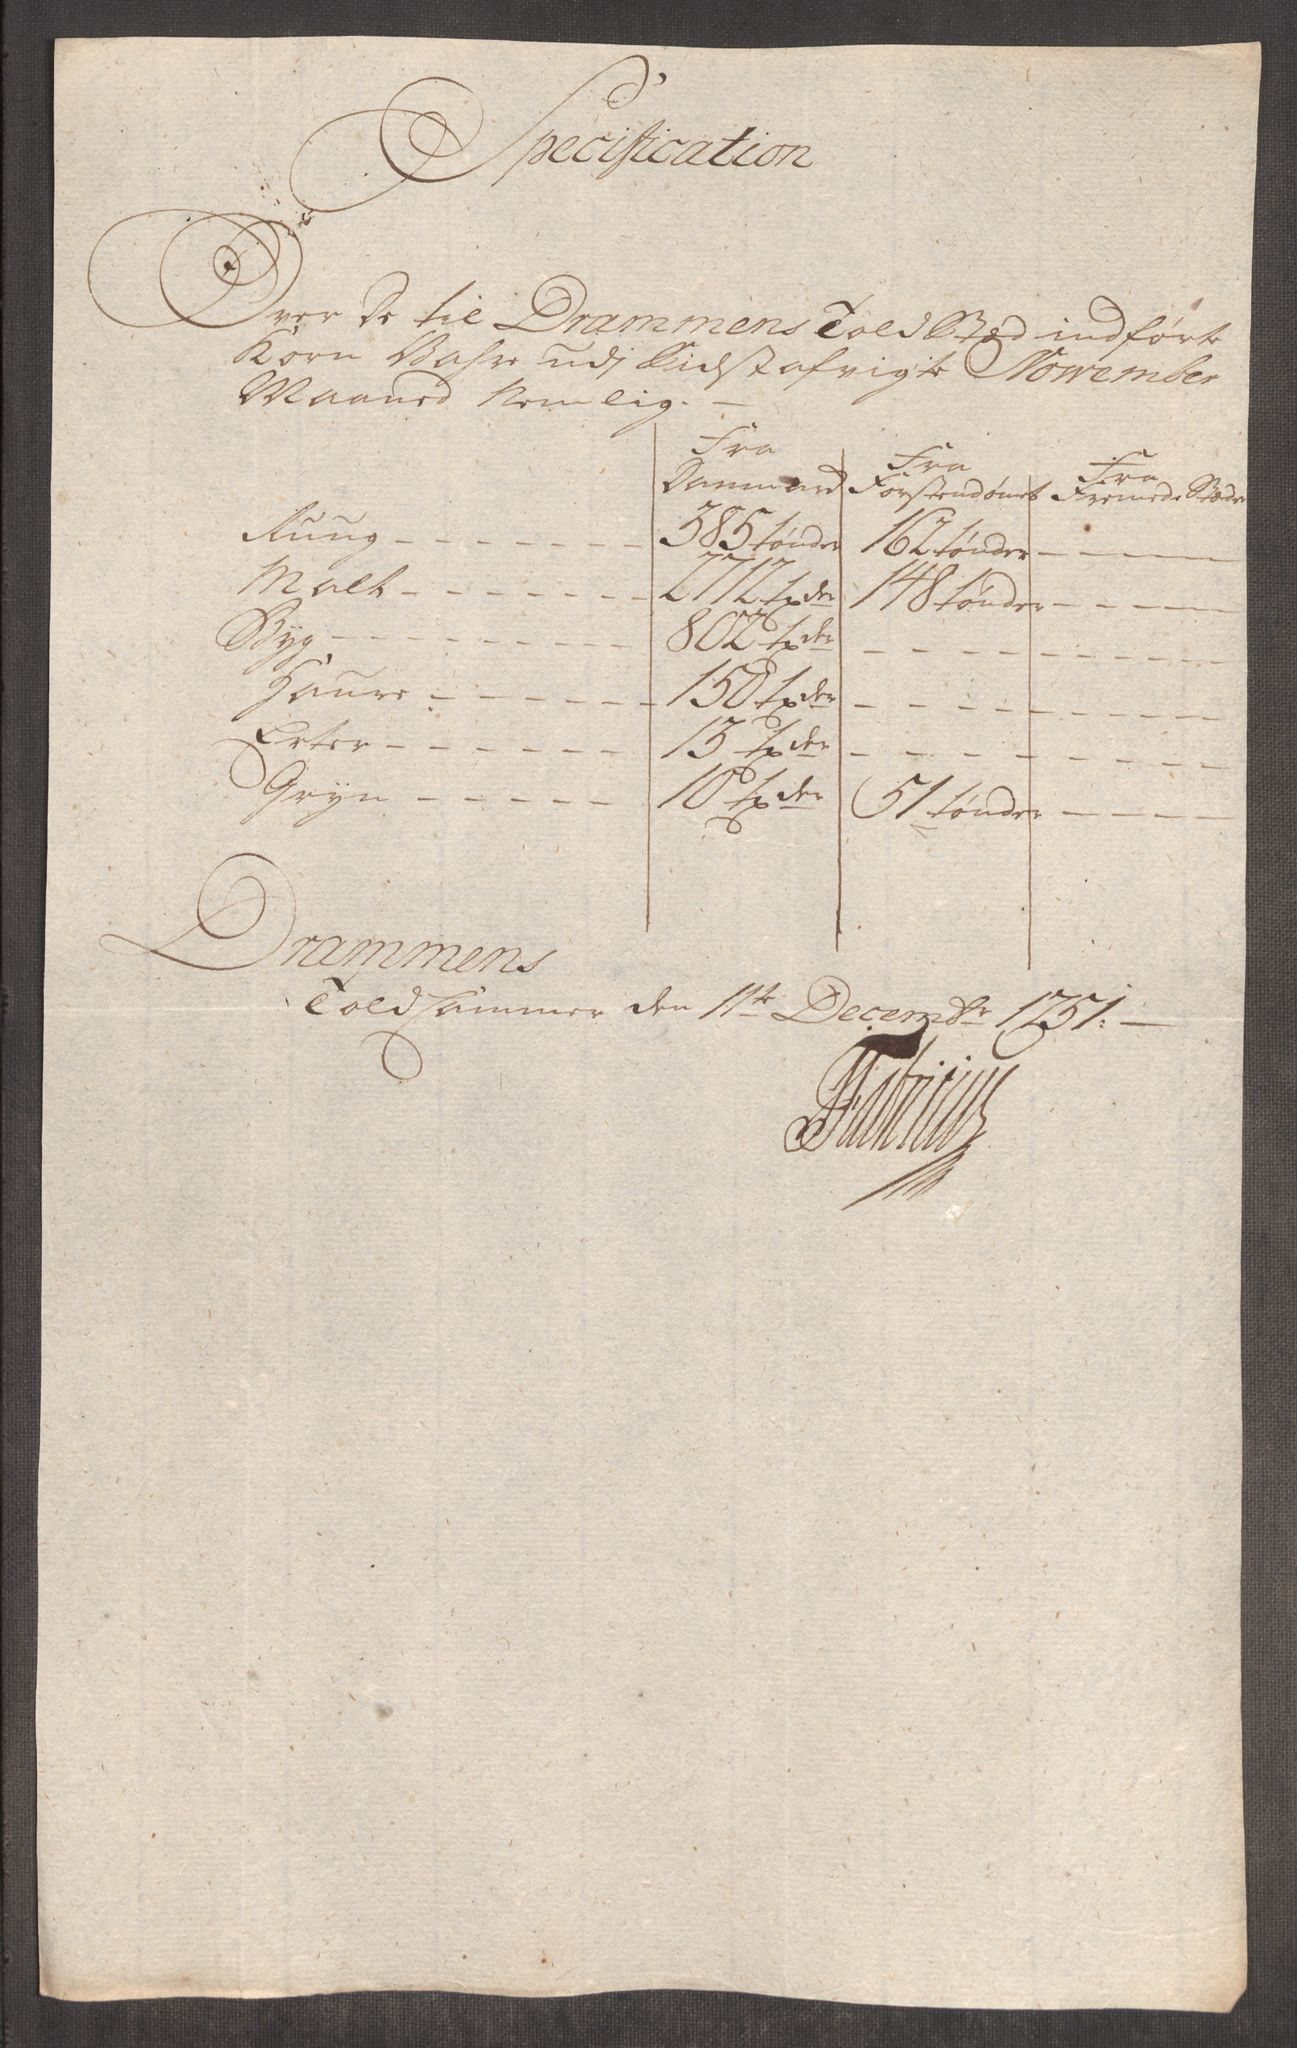 Specification
Over De til Drammens Told Stæd indførte
Korn Vahre udj Sidst afvigte Nowember
Maaned Nemlig. —
Fra Danmarck | Fra Førstendømet | Fra Fremede Stæder
Ruug - - - - - - 385 tønder | 162 tønder - - - -
Malt - - - - - - 2712 tder | 148 tønder - - - -
Byg - - - - - - 802 tder - - - - - - - -
Haure - - - - - 150 tder - - - - - - - -
Erter - - - - - - 13 tder - - - - - - - -
Gryn - - - - - 10 tder | 51 tønder - - - -
Drammens
Toldkammer den 11te Decembr 1751. —
Fabritius